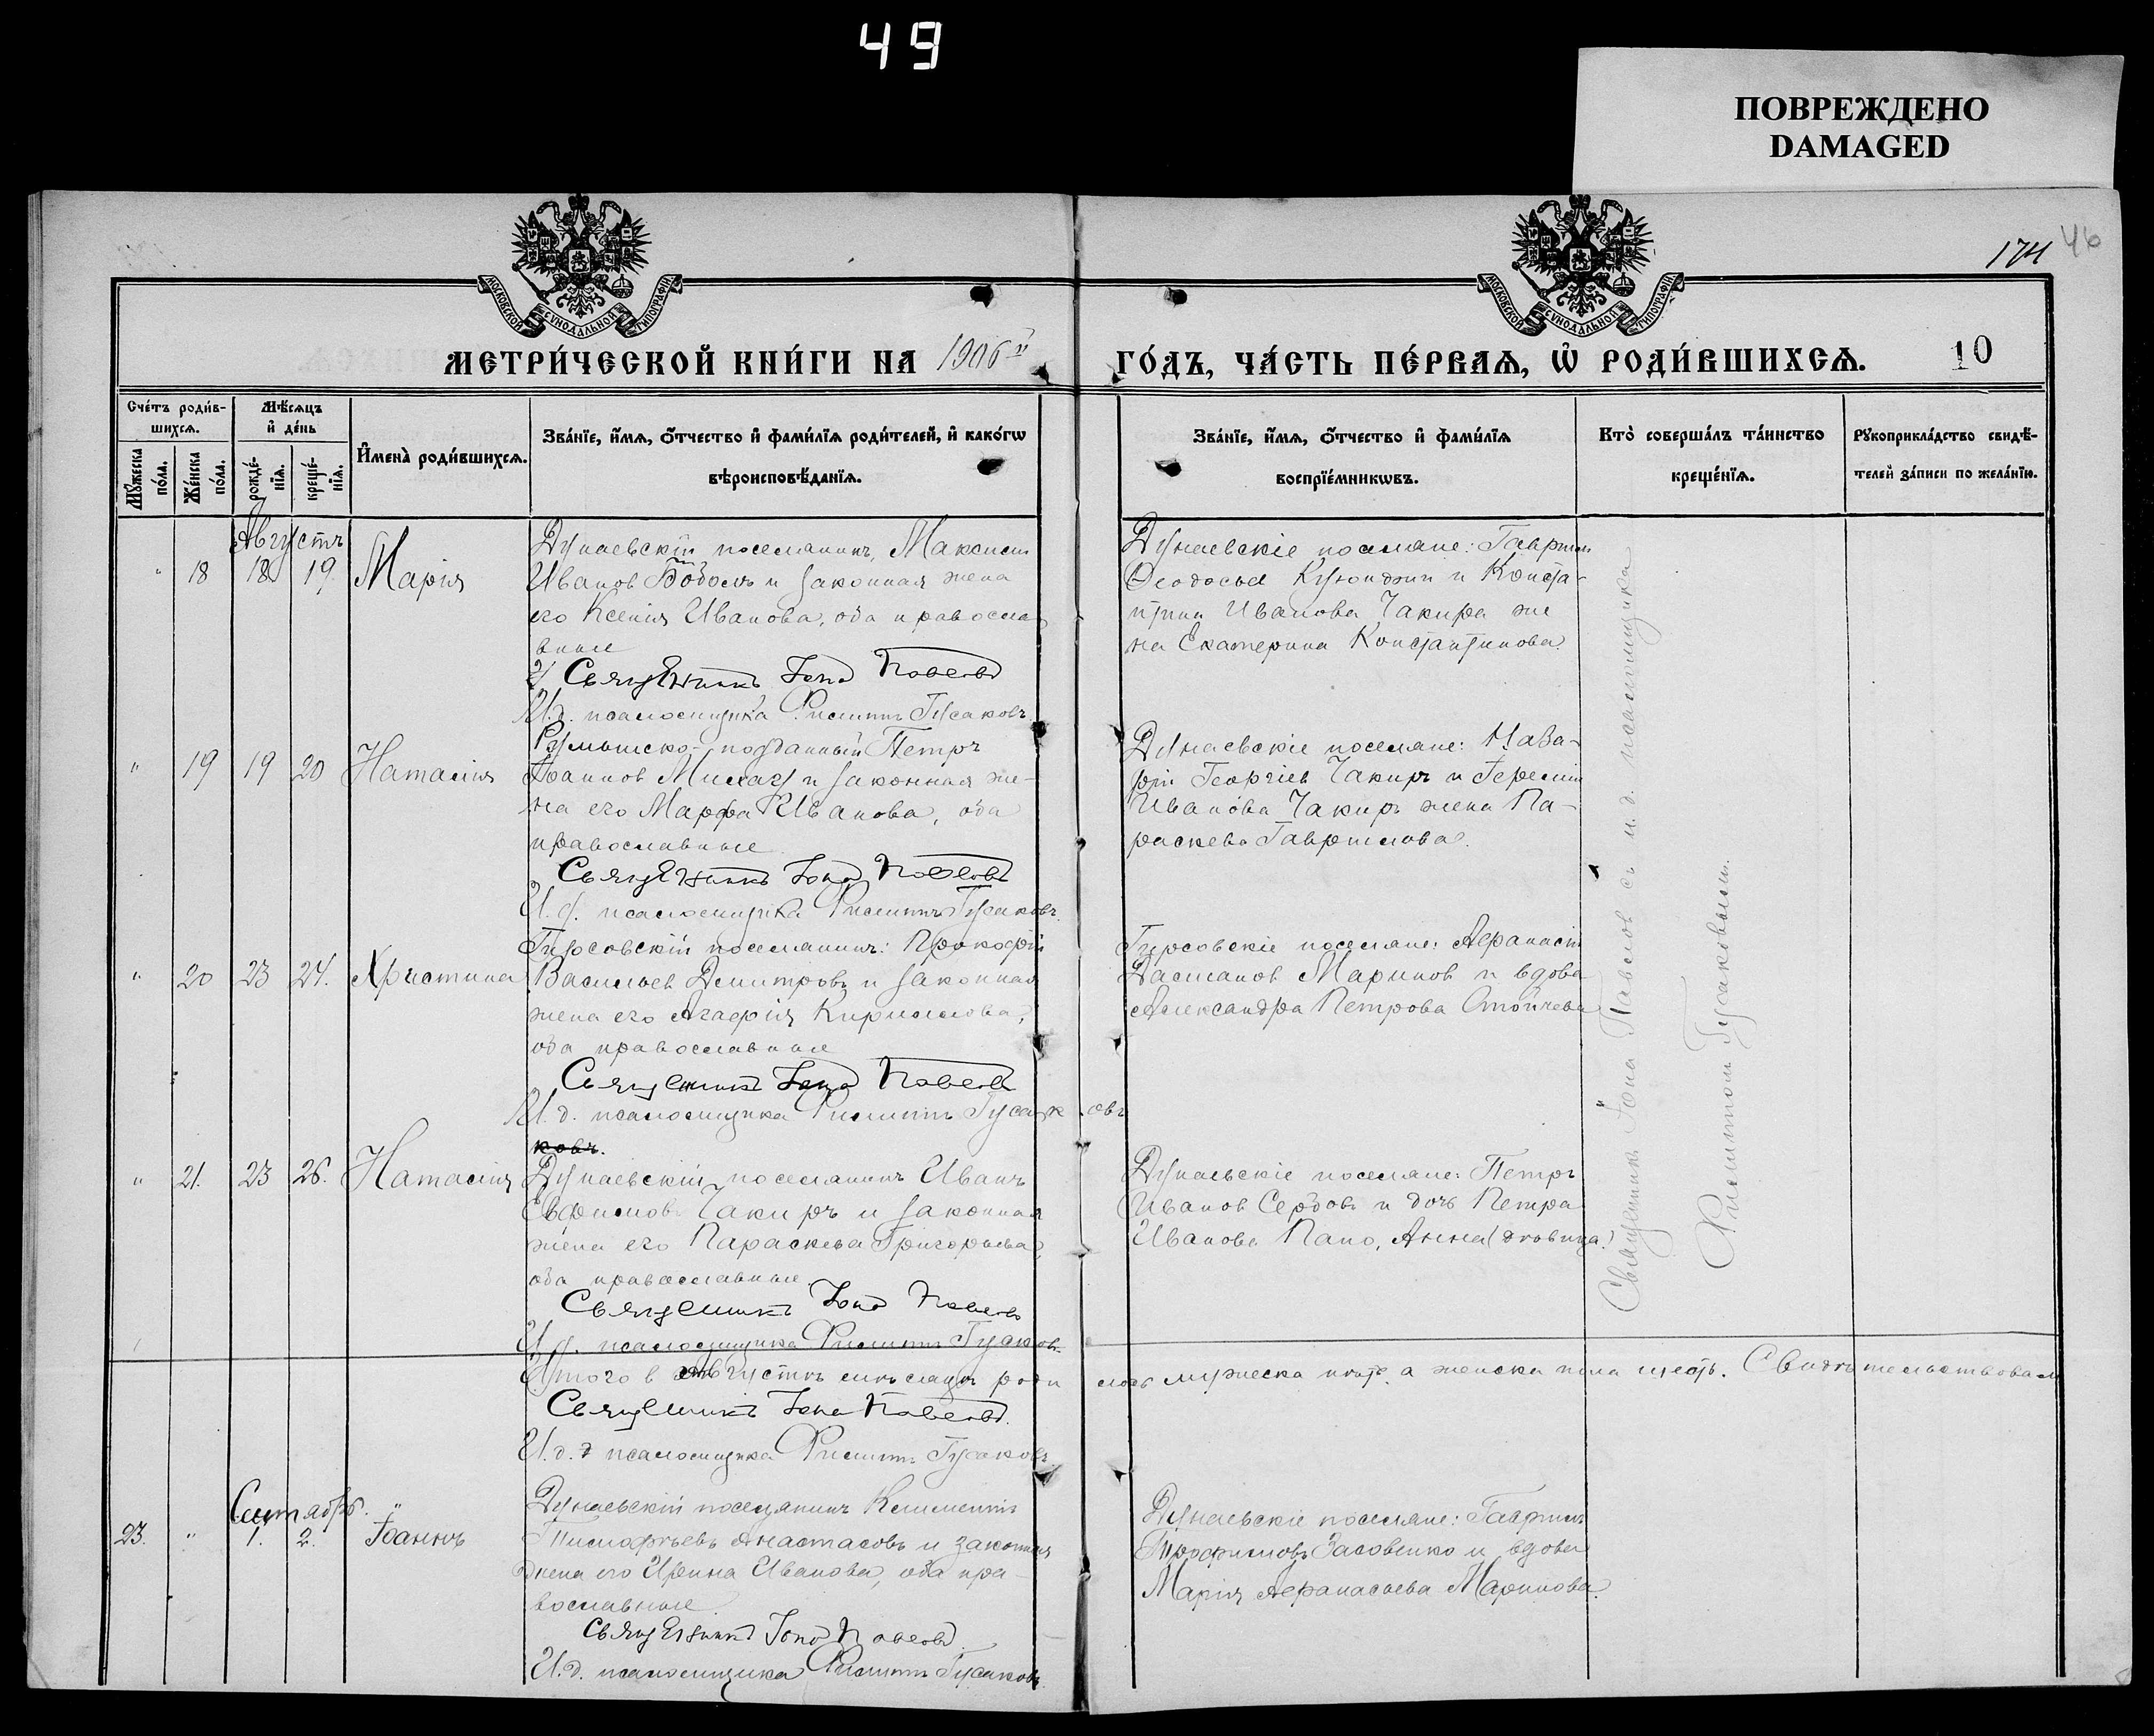 49
ПОВРЕЖДЕНО
DAMAGED
174
46
МОСКОВСКОЙ СѴНОДАЛЬНОЙ ТИПОГРАФІИ
МОСКОВСКОЙ СѴНОДАЛЬНОЙ ТИПОГРАФІИ
МЕТРИ́ЧЕСКОЙ КНИ́ГИ НА 1906й ГО́ДЪ, ЧА́СТЬ ПЕ́РВАЯ, Ѡ҆ РОДИ́ВШИХСЯ.
10
Сче́тъ роди́в-
шихся.
Мѣ́сяцъ
и҆ де́нь
Мꙋ́жеска
по́ла.
Же́нска
по́ла.
рожде́-
нїя.
креще́-
нїя.
И҆мена̀ роди́вшихся.
Зва́нїе, и҆́мя, ѻ҆́тчество и҆ фами́лїя роди́телей, и҆ како́гѡ
вѣроисповѣ́данїя.
Зва́нїе, и҆́мя, ѻ҆́тчество и҆ фами́лїя
воспрїе́мникѡвъ.
Кто̀ соверша́лъ та́инство
креще́нїя.
Рꙋкоприкла́дство свидѣ́-
телей за́писи по жела́нїю.
Августъ
" 18 18 19. Марія
Дунаевскій поселянинъ, Максим
Иванов Бодомъ и законная жена
его Ксенія Иванова, оба правосла
вные
Священникъ Іона Павловъ
И.д. псаломщика Филиппъ Гусаковъ
Дунаевскіе поселяне: Гавриил
Феодосьев Куюнджи и Конста-
нтин Иванова Чакира же
на Екатерина Константинова.
" 19 19 20 Наталія
Румынско-подданный Петръ
Іоаннов Милад и законная же-
на его Марфа Иванова, оба
православные
Священникъ Іона Павловъ
И.д. псаломщика Филиппъ Гусаковъ.
Дунаевскіе поселяне: Наза-
рій Георгіев Чакиръ и Іеремии
Иванова Чакиръ жена Па-
раскева Гавриилова.
" 20 23 24. Христина
Гирсовскій поселянинъ: Прокофій
Васильев Димитровъ и законная
жена его Агафія Кириллова,
оба православные
Священникъ Іона Павловъ
И.д. псаломщика Филиппъ Гусаковъ
ковъ.
Гирсовскіе поселяне: Афанасій
Маринов и вдова
Александра Петрова Стойчева
" 21. 23 26. Наталія
Дунаевскій поселянинъ Иванъ
Евфимов Чакиръ и законная
жена его Параскева Григорьева,
оба православные.
Священникъ Іона Павловъ
И.д. псаломщика Филиппъ Гусаковъ.
Дунаевскіе поселяне: Петръ
Иванов Сербовъ и дочь Петра
Иванова Папо, Анна (дѣвица.)
Священникъ Іона Павлов съ и.д. псаломщика
Филиппом Гусаковым.
Итого в августѣ мѣсяцѣ роди лось мужеска пять, а женска пола шесть. Свидѣтельствовал
Священникъ Іона Павловъ.
И.д. псаломщика Филиппъ Гусаковъ
Сентябрь.
23. " 1. 2. Іоаннъ
Дунаевскій поселянинъ Климентій
Тимофѣевъ Анастасовъ и законная
жена его Ирина Иванова, оба пра-
вославные.
Священникъ Іона Павловъ.
И.д. псаломщика Филиппъ Гусаковъ
Дунаевскіе поселяне: Гавриилъ
Трофимовъ Засовенко и вдова
Марія Афанасьева Маринова.